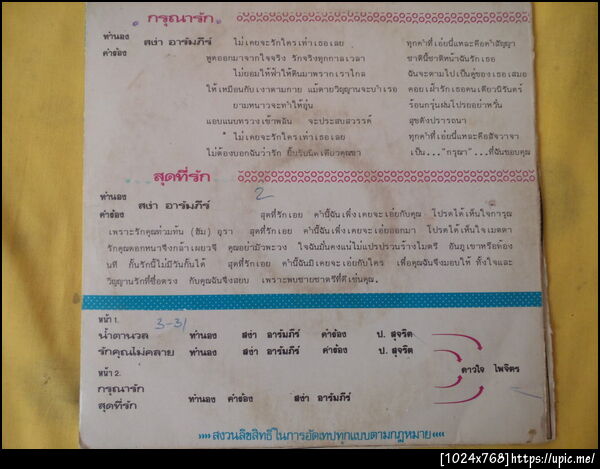 กรุณารัก
ทำนอง สง่า อารัมภีร์ ไม่เคยจะรักใครเท่าเธอเลย ทุกคำที่เอ่ยนี่แหละคือคำสัญญา
คำร้อง พูดออกมาจากใจจริง รักจริงทุกกาลเวลา ชาตินี้ชาติหน้าฉันรักเธอ
ไม่ยอมให้ฟ้าให้ดินมาพรากเราไกล ฉันจะตามไปเป็นคู่ของเธอเสมอ
ให้เหมือนกับเงาตามกาย แม้ตายวิญญาณจะบำเรอ คอยเฝ้ารักเธอคนเดียวนิรันดร์
ยามหนาวจะทำให้อุ่น ร้อนกรุ่นฝนโปรยอย่าหวั่น
แอบแนบทรวงเข้าพลัน จะประสบสวรรค์ สุขดังปรารถนา
ไม่เคยจะรักใครเท่าเธอเลย ทุกคำที่เอ่ยนี่แหละคือสัจวาจา
ไม่ต้องบอกฉันว่ารัก ยิ้มรับนิดเดียวคุณขา เป็น..."กรุณา"...ที่ฉันขอบคุณ
สุดที่รัก
2
ทำนอง
คำร้อง สง่า อารัมภีร์ สุดที่รักเอย คำนี้ฉันเพิ่งเคยจะเอ่ยกับคุณ โปรดได้เห็นใจการุณ
เพราะรักคุณท่วมท้น (ฮัม) อุรา สุดที่รักเอย คำนี้ฉันเพิ่งเคยจะเอ่ยออกมา โปรดได้เห็นใจเมตตา
รักคุณดอกหนาจึงกล้าเผยวจี คุณอย่ามัวพะวง ใจฉันมั่นคงแน่ไม่แปรปรวนร้างไมตรี อันภูเขาหรือท้อง
นที กั้นรักนี้ไม่มีวันกั้นได้ สุดที่รักเอย คำนี้ฉันมิเคยจะเอ่ยกับใคร เพื่อคุณฉันจึงมอบให้ ทั้งใจและ
วิญญาณรักที่ซื่อตรง กับคุณฉันจึงสยบ เพราะพบชายชาตรีที่ดีเช่นคุณ.
หน้า 1. 3-31
น้ำตานวล ทำนอง สง่า อารัมภีร์ คำร้อง ป. สุจริต
รักคุณไม่คลาย ทำนอง สง่า อารัมภีร์ คำร้อง ป. สุจริต
หน้า 2. ดาวใจ ไพจิตร
กรุณารัก
สุดที่รัก ทำนอง คำร้อง สง่า อารัมภีร์
»»» สงวนลิขสิทธิ์ในการอัดเทปทุกแบบตามกฎหมาย «««
[1024x768]https://upic.me/